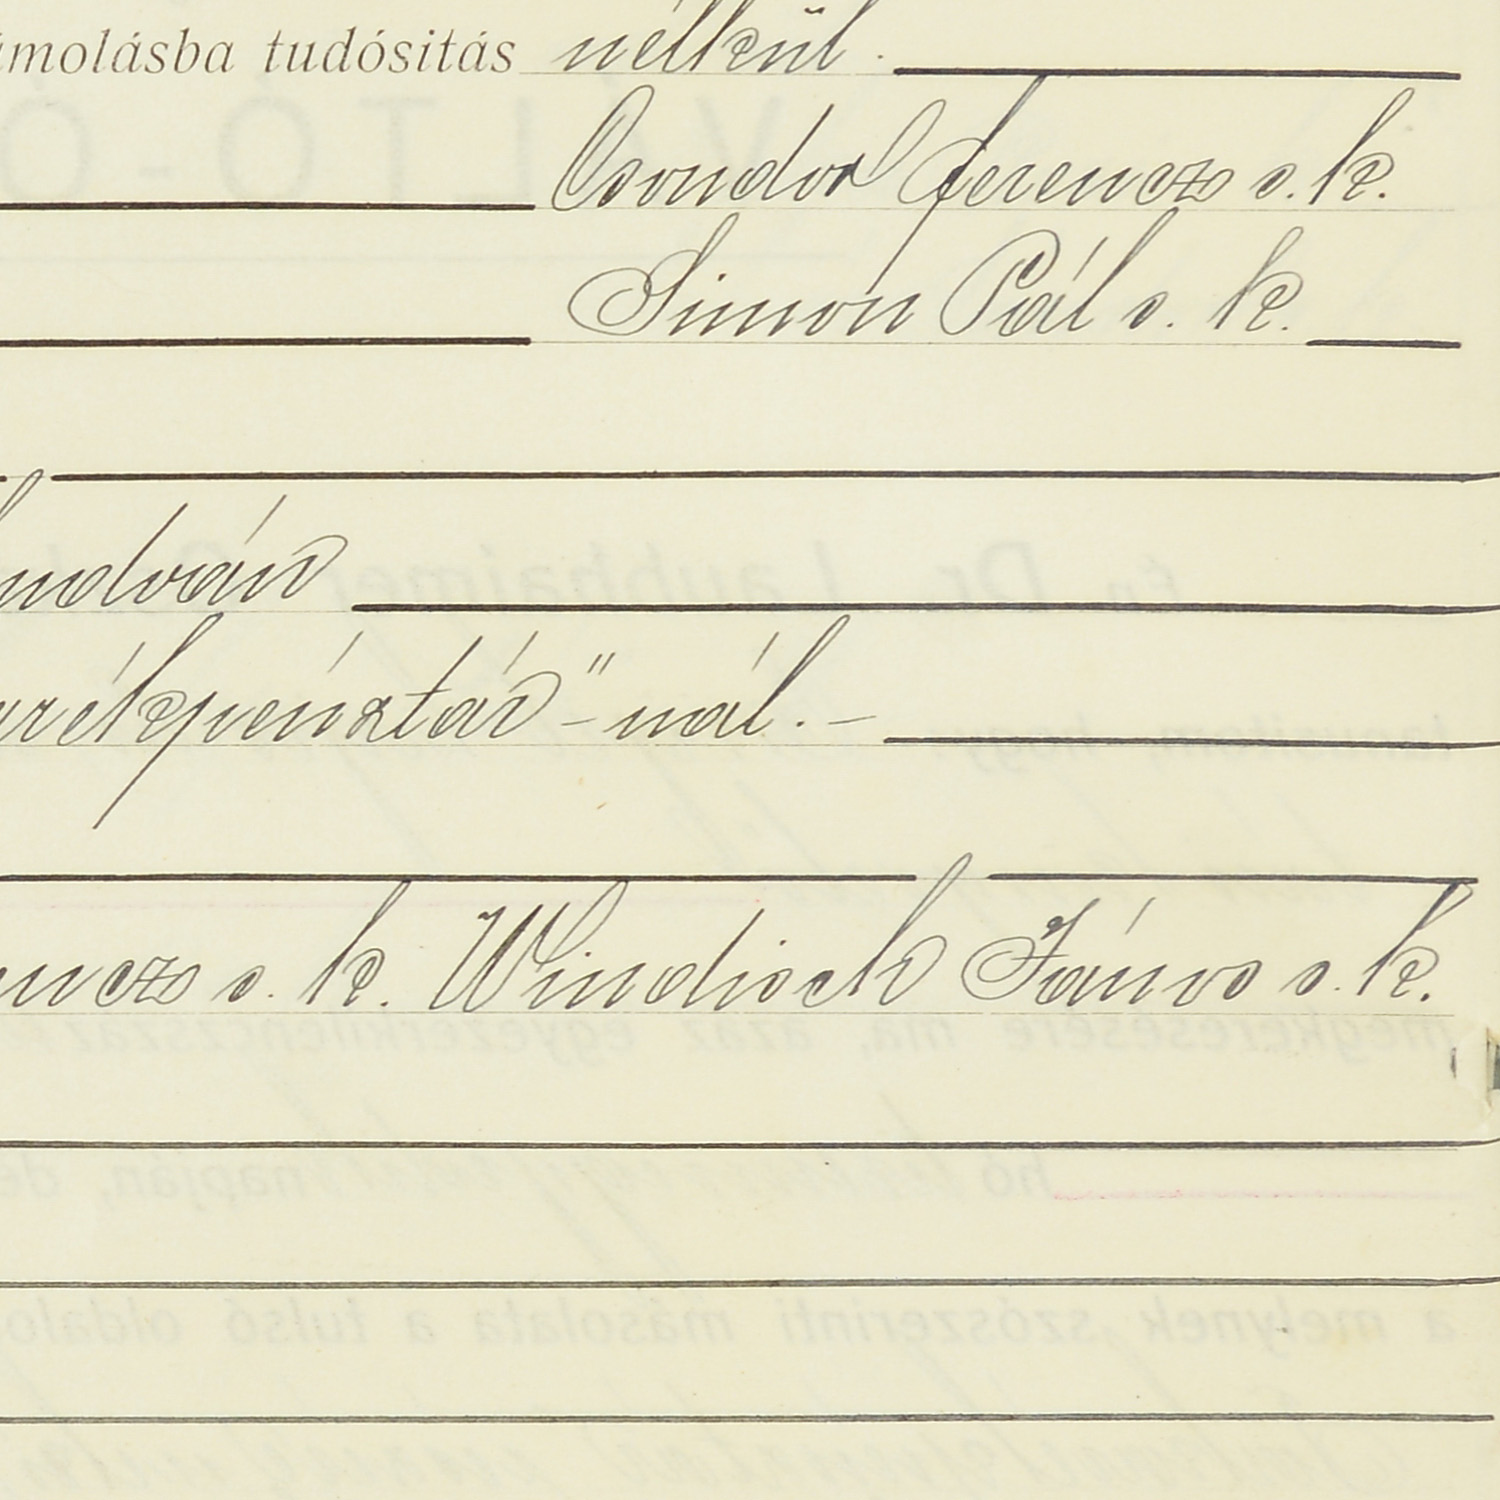 ámolásba tudósitás nélkül.
Csondor Ferencz s. k.
Simon Pál s. k.
endván
arékpénztár"-nál.-
encz s. k. Windisch János s. k.